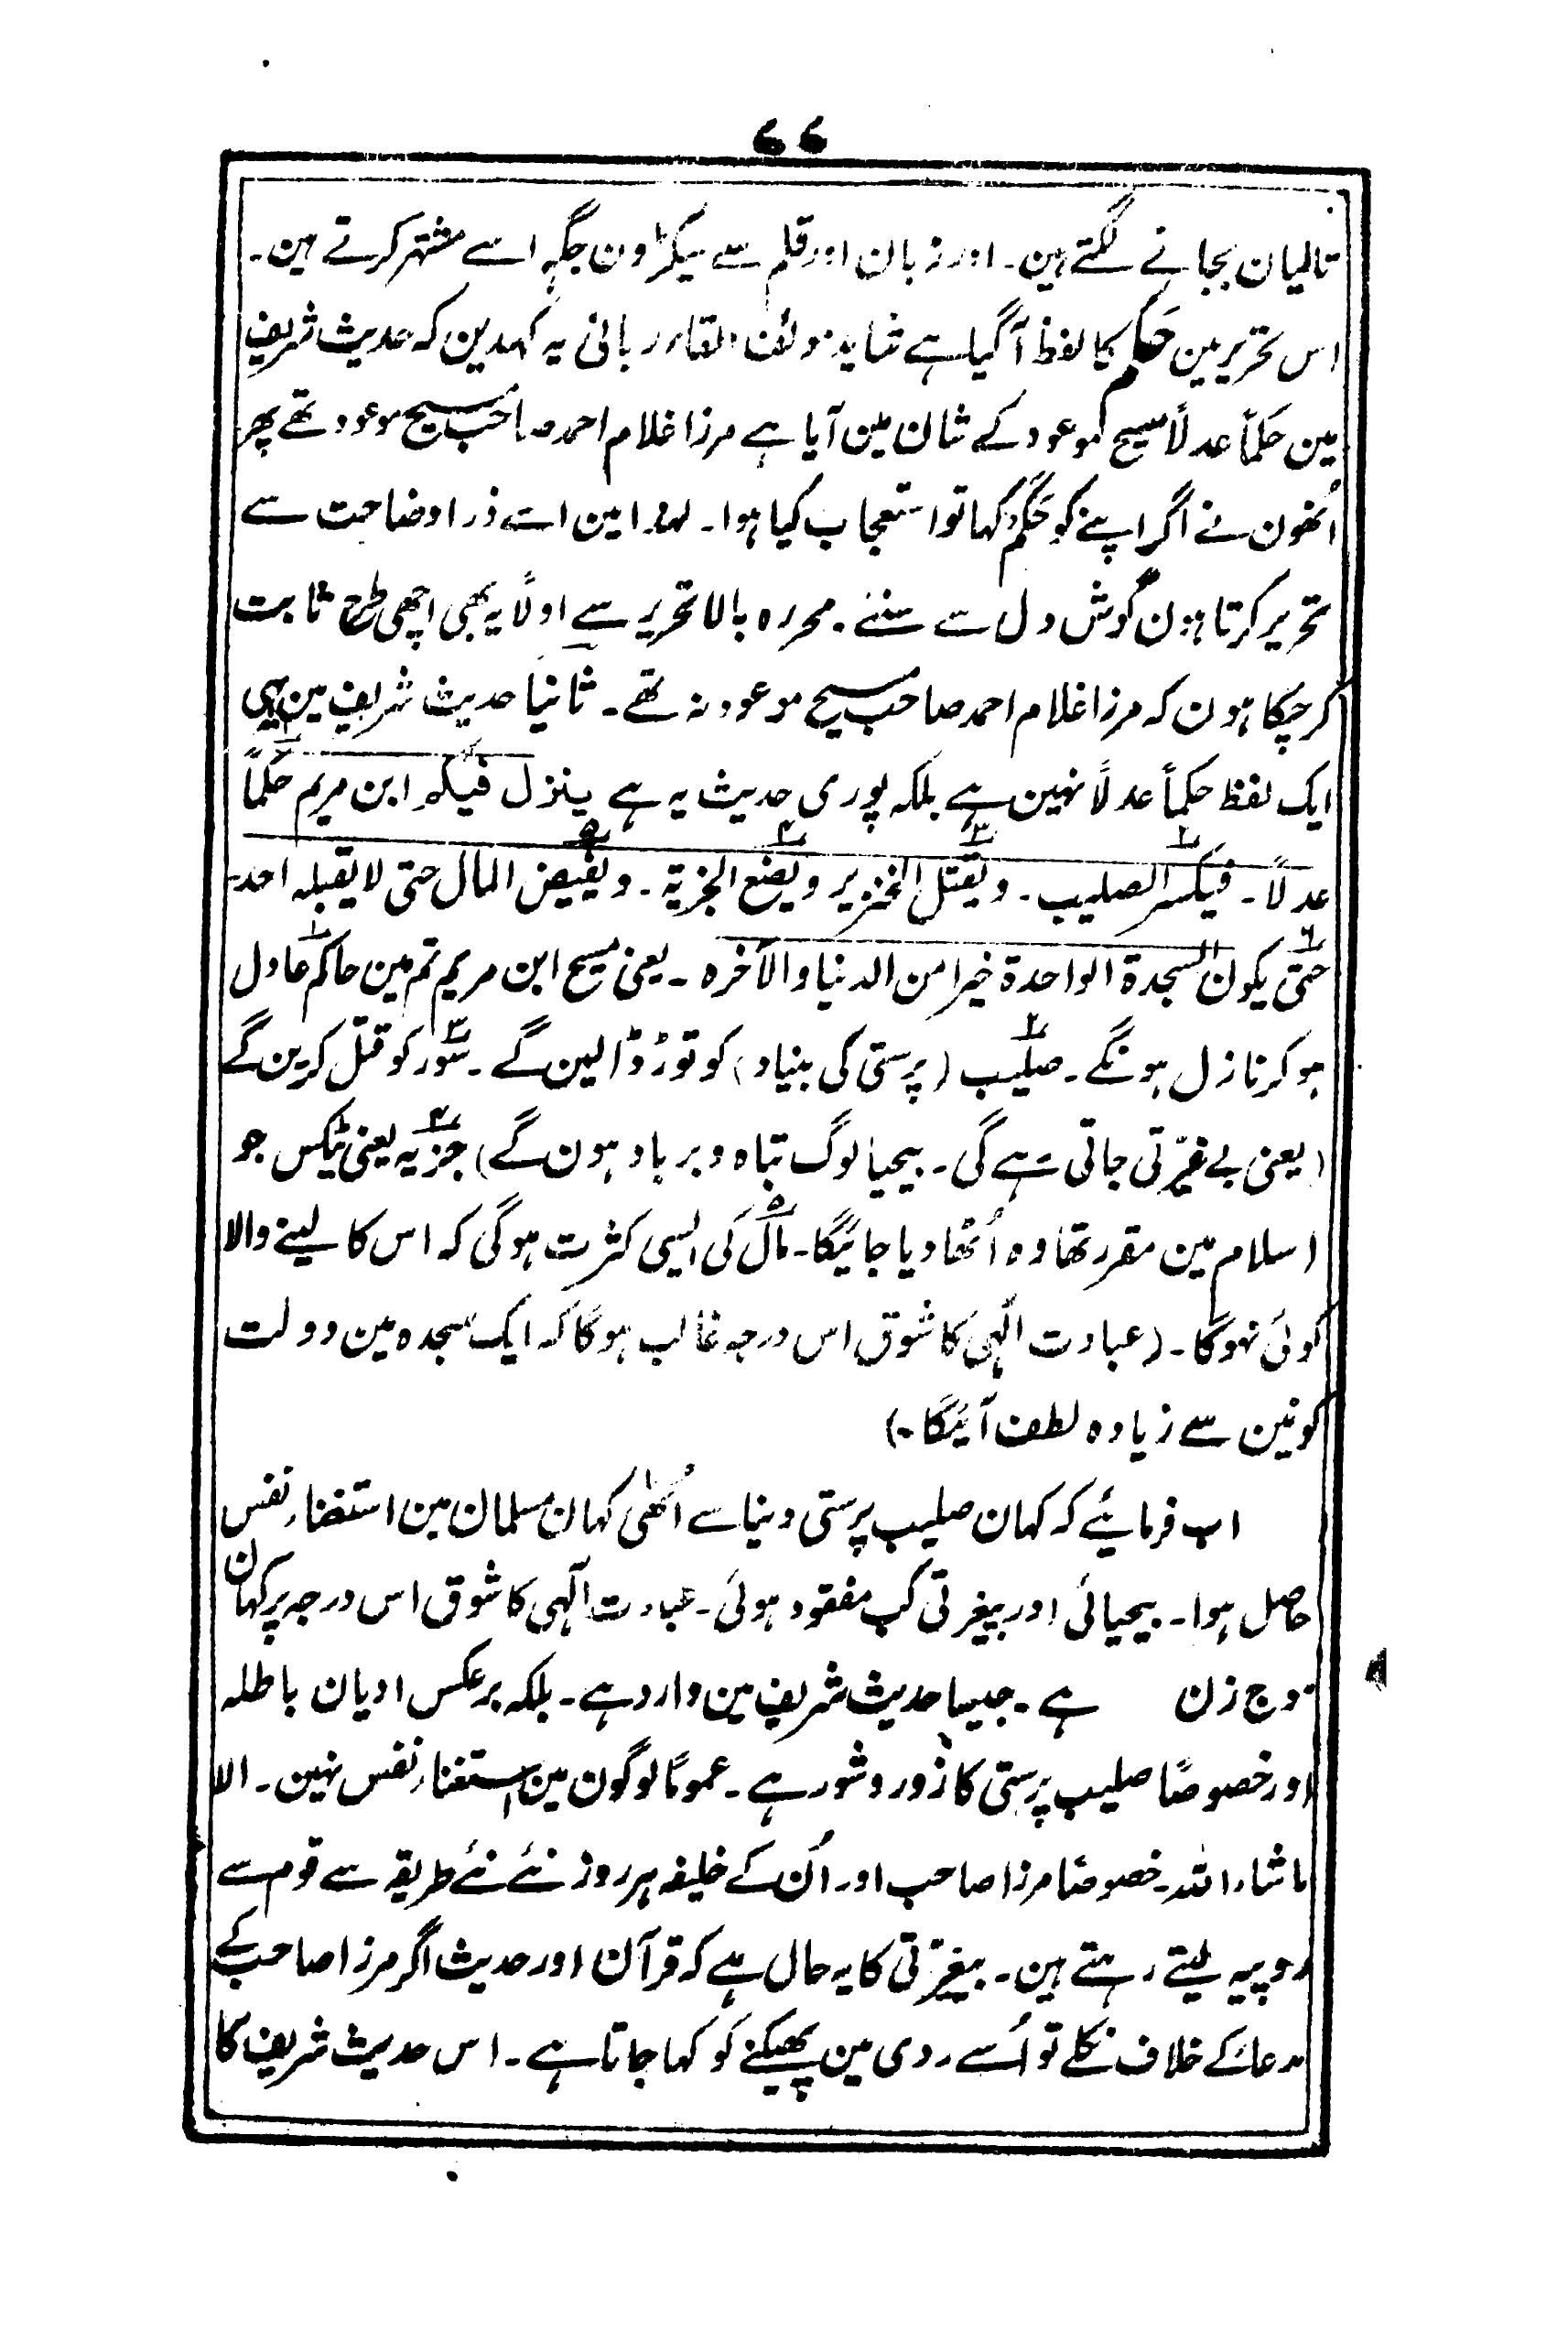 ۶۶
تالیان بجانے لگتے ہین۔ اور زبان اور قلم سے سیکڑون جگہ اسے مشتہر کرتے ہین۔
اس تحریر مین حَکم کا لفظ آگیا ہے شاید مولف القاء ربانی یہ کہدین کہ حدیث شریف
مین حَکماً عدلاً مسیح موعود کے شان مین آیا ہے مرزا غلام احمد صاحب مسیح موعود تھے پھر
اُنھون نے اگر اپنے کو حَکَم کہا تو استعجاب کیا ہوا۔ لہذا مین اسے ذرا وضاحت سے
تحریر کرتا ہون گوش دل سے سنئے۔ محررہ بالا تحریر سے اولاً یہ بھی اچھی طرح ثابت
کر چکا ہون کہ مرزا غلام احمد صاحب مسیح موعود نہ تھے۔ ثانیا حدیث شریف مین یہی
ایک لفظ حکماً عدلاً نہین ہے بلکہ پوری حدیث یہ ہے ینزل فیکم ابن مریم حَکماً
عدلاً۔ فیکسر الصلیب۔ ویقتل الخنزیر ویضع الجزیۃ۔ ویفیض المال حتی لا یقبلہ احد۔
حتی یکون السجدۃ الواحدۃ خیرا من الدنیا والآخرہ۔ یعنی مسیح ابن مریم تم مین حاکم عادل
ہو کر نازل ہونگے۔ صلیب (پرستی کی بنیاد) کو توڑ ڈالین گے۔ سُور کو قتل کرین گے
(یعنی بے غیرتی جاتی رہے گی۔ بیحیا لوگ تباہ و برباد ہون گے) جزیہ یعنی ٹیکس جو
اسلام مین مقرر تھا وہ اُٹھا دیا جائیگا۔ مال کی ایسی کثرت ہو گی کہ اس کا لینے والا
کوئی نہو گا۔ (عبادت الٰہی کا شوق اس درجہ غالب ہو گا کہ ایک سجدہ مین دولت
کونین سے زیادہ لطف آئیگا۔)
اب فرمائیے کہ کہان صلیب پرستی دنیا سے اُٹھی کہان مسلمان مین استغناء نفس
حاصل ہوا۔ بیحیائی اور بیغیرتی کب مفقود ہوئی۔ عبادت الٰہی کا شوق اس درجہ پر کہان
موج زن ہے۔ جیسا حدیث شریف مین وارد ہے۔ بلکہ برعکس ادیان باطلہ
اور خصوصًا صلیب پرستی کا زور و شور ہے۔ عمومًا لوگون مین استغناء نفس نہین۔ الا
ماشاء اللہ۔ خصوصًا مرزا صاحب اور اُن کے خلیفہ ہر روز نئے نئے طریقہ سے قوم سے
روپیہ لیتے رہتے ہین۔ بیغیرتی کا یہ حال ہے کہ قرآن اور حدیث اگر مرزا صاحب کے
مدعا کے خلاف نکلے تو اُسے ردی مین پھیکنے کو کہا جاتا ہے۔ اس حدیث شریف کا